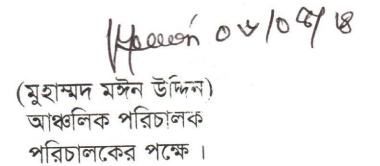 (মুহাম্মদ মঈন উদ্দিন)
আঞ্চলিক পরিচালক
পরিচালকের পক্ষে ।